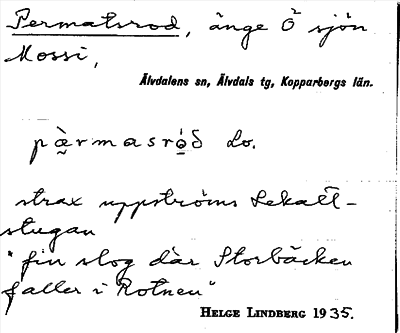 Permatsrod, änge Ö sjön
Mossi,
Älvdalens sn, Älvdals tg, Kopparbergs län.
pàrmasród do.
strax uppströms Lekatt-
stugan
"fin slog där Storbäcken
faller i Rotnen"
HELGE LINDBERG 1935.